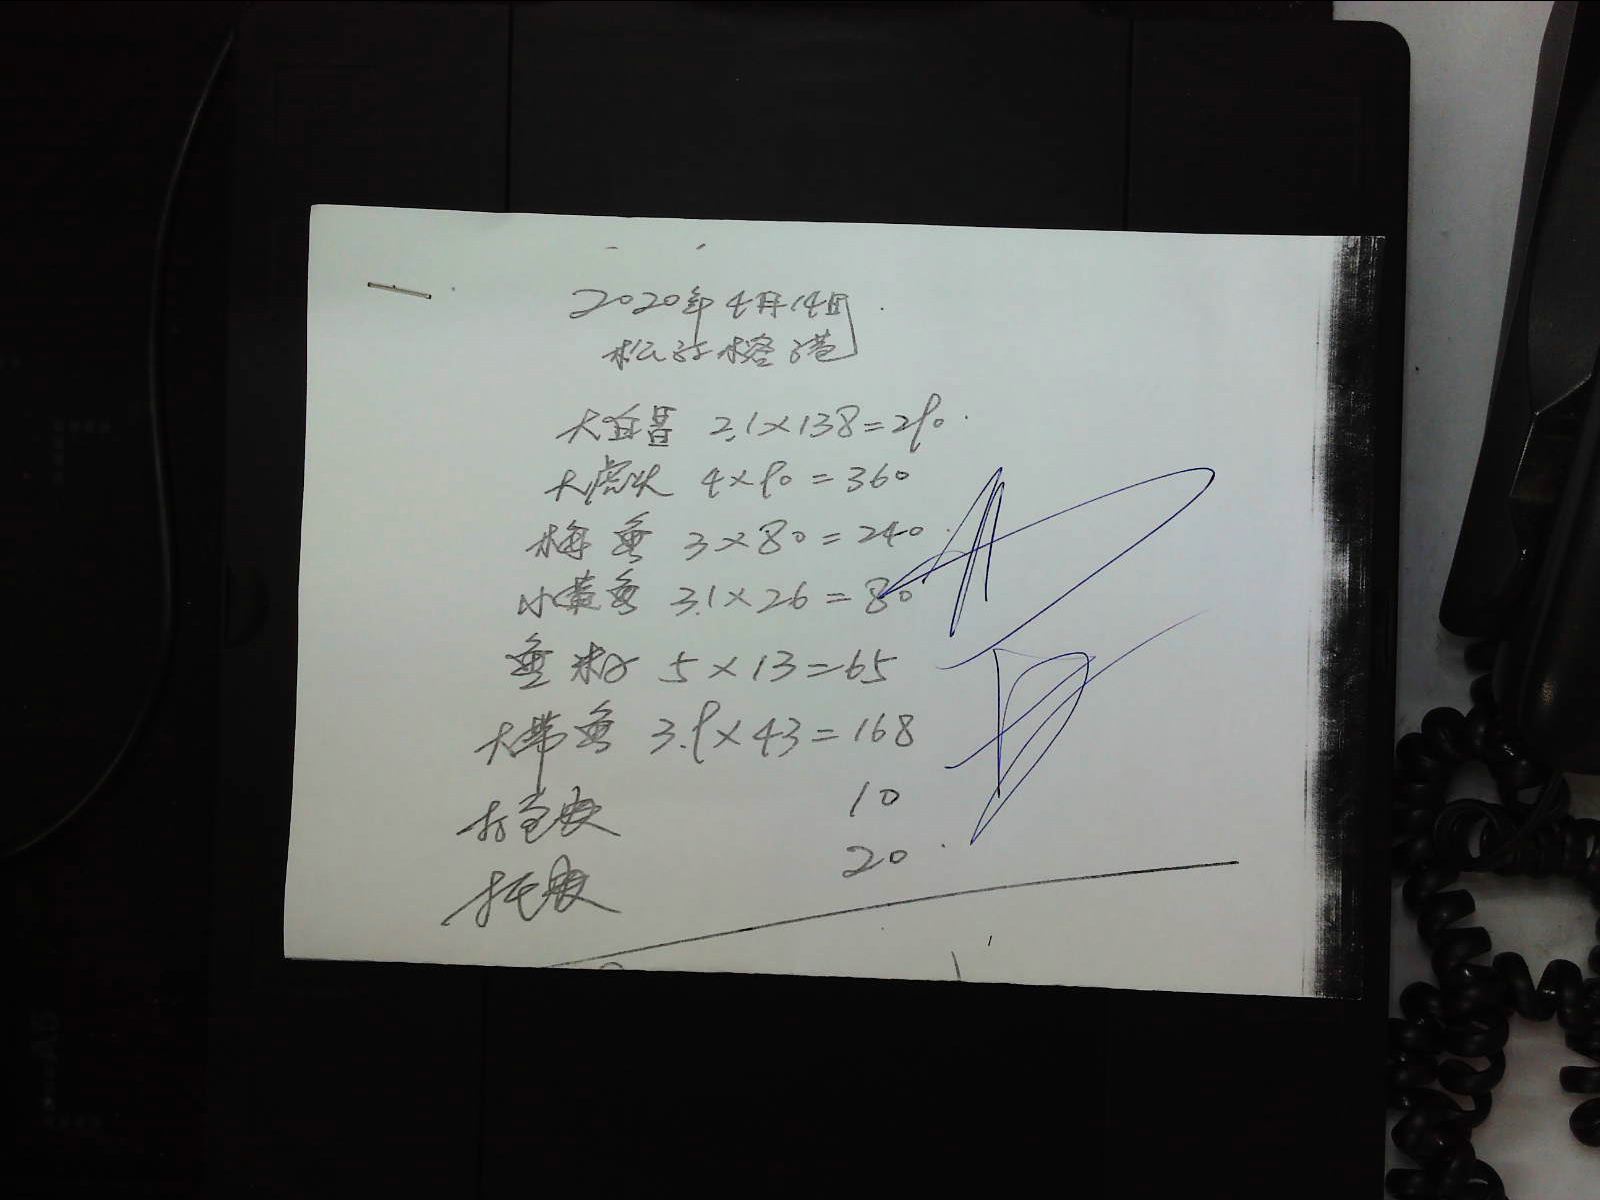 2020年4月14日
松江榕港
大白昌 2.1×138=290
大虎头 4×90=360
梅鱼 3×80=240
小黄鱼 3.1×26=80
鱼籽 5×13=65
大带鱼 3.9×43=168
打包费 10
托费 20